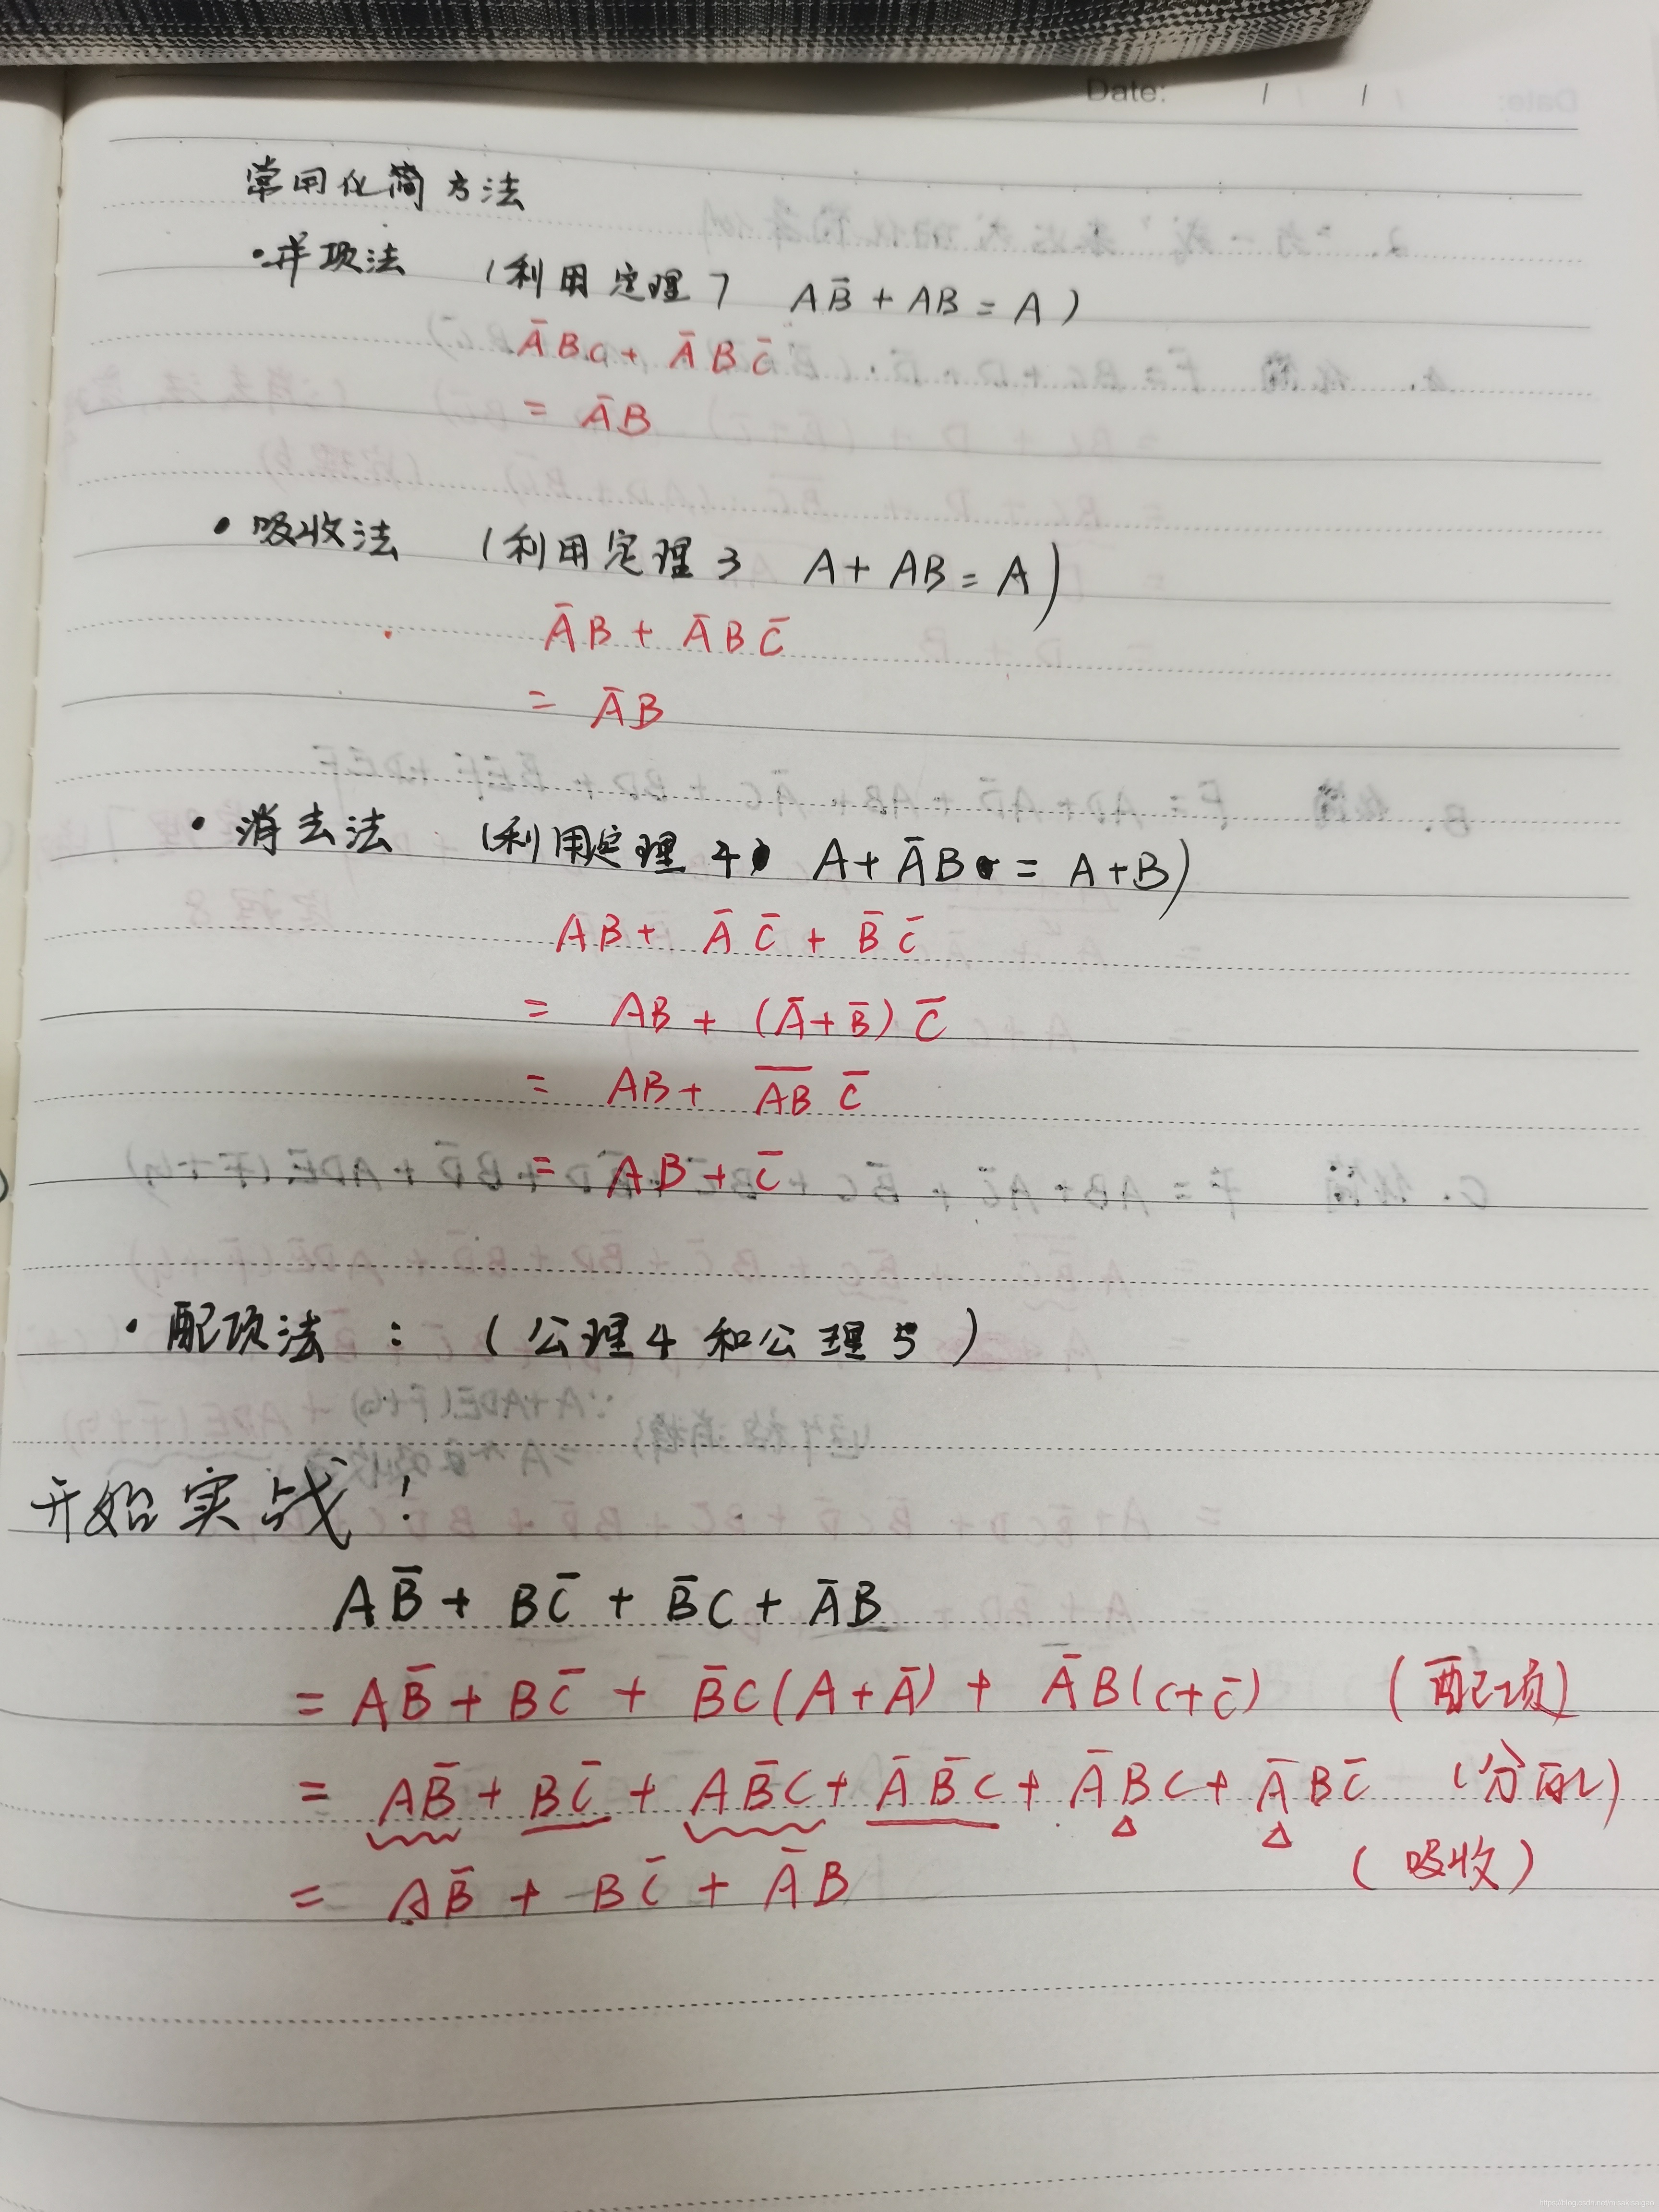 Date: / /
常用化简方法
·并项法 (利用定理7 AB̄ + AB = A)
ĀBC + ĀBC̄
= ĀB
·吸收法 (利用定理3 A + AB = A)
ĀB + ĀBC̄
= ĀB
·消去法 (利用定理4 A + ĀB = A+B)
AB + ĀC̄ + B̄C̄
= AB + (Ā+B̄)C̄
= AB + A̅B̅ C̄
= AB + C̄
·配项法:(公理4和公理5)
开始实战!
AB̄ + BC̄ + B̄C + ĀB
= AB̄ + BC̄ + B̄C(A+Ā) + ĀB(C+C̄) (配项)
= AB̄ + BC̄ + AB̄C + ĀB̄C + ĀBC + ĀBC̄ (分配)
(吸收)
= AB̄ + BC̄ + ĀB